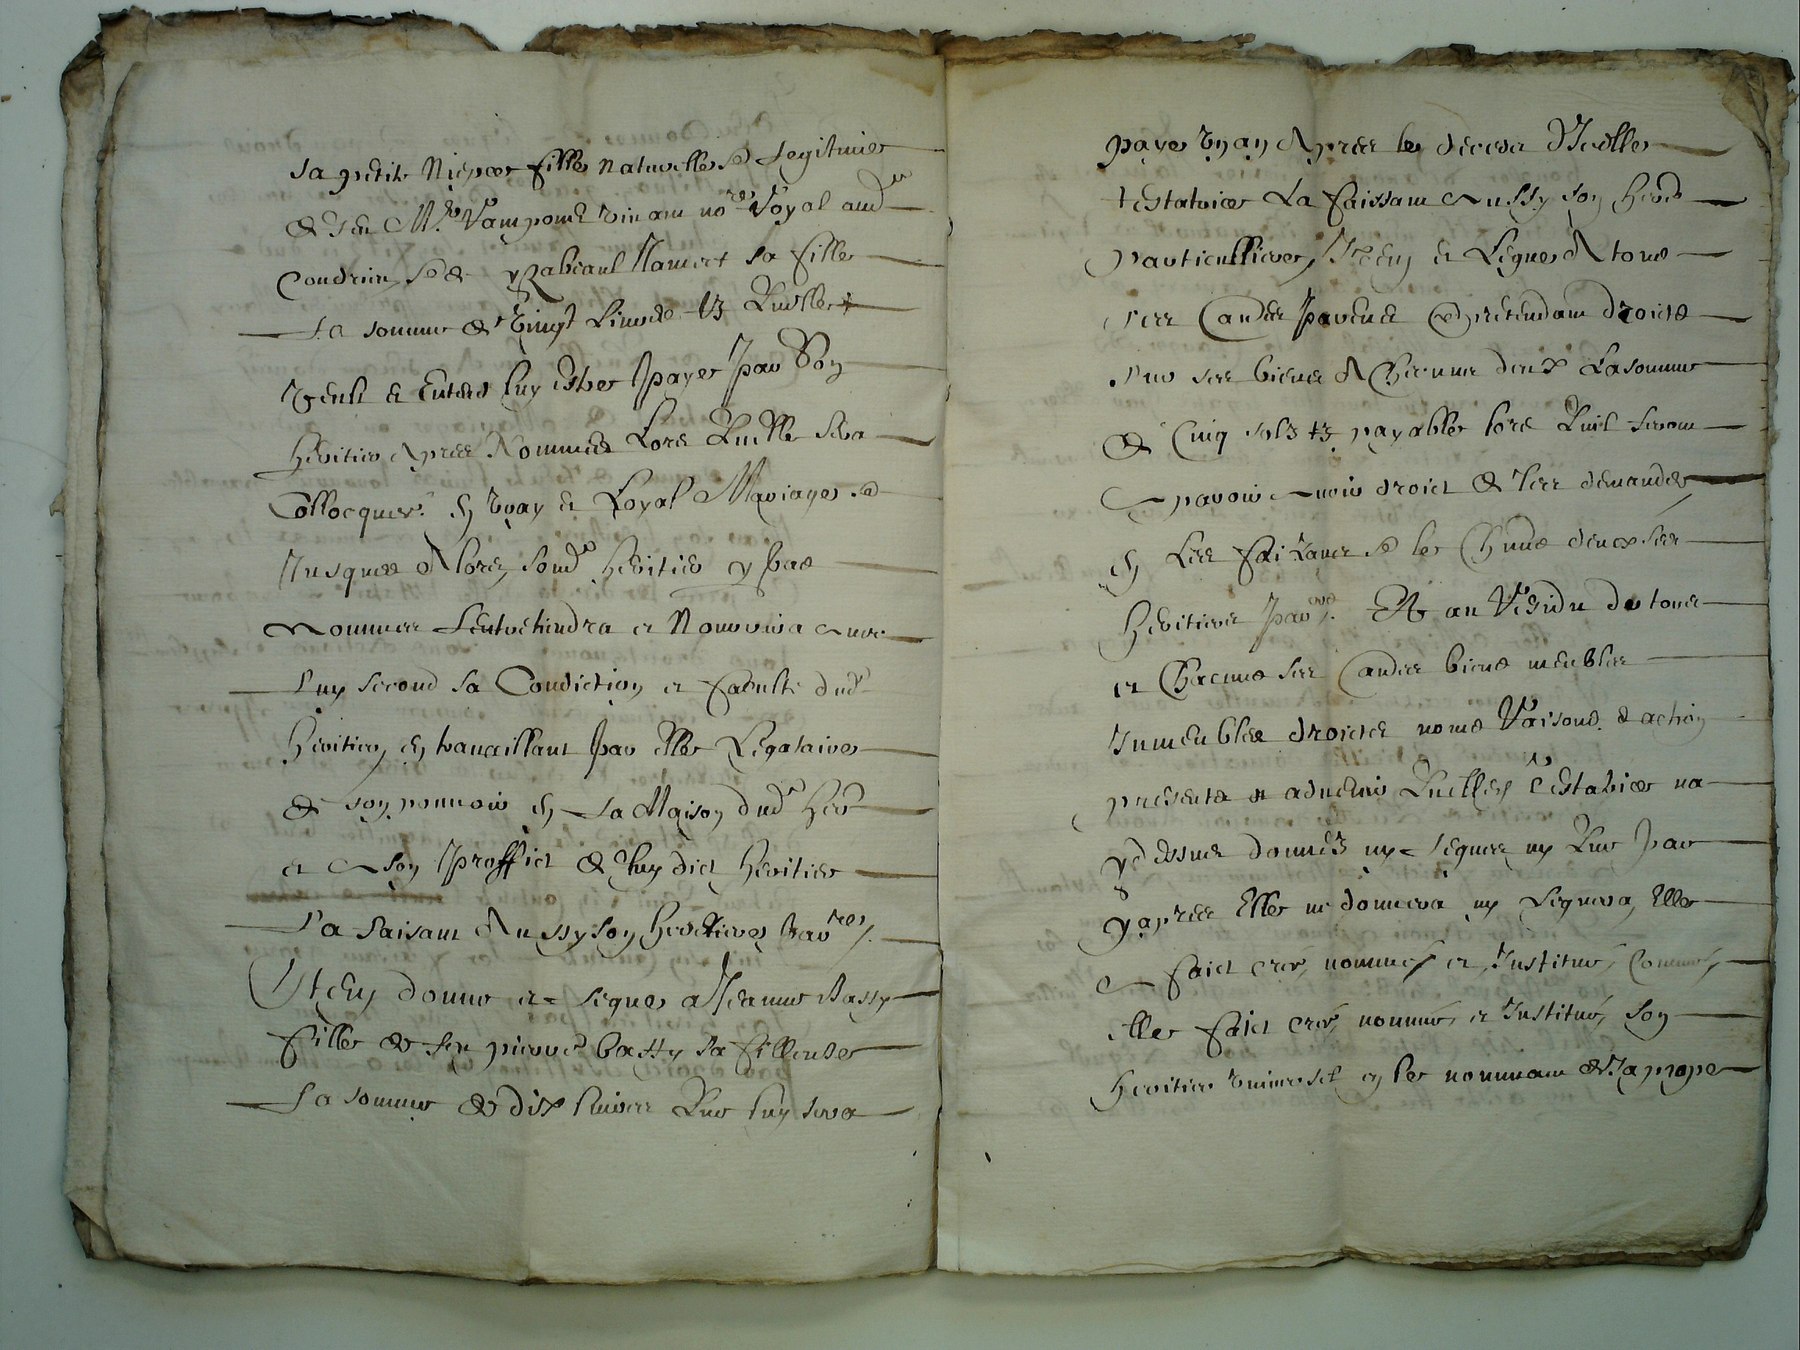 sa petite Niepce fille naturelle et Legitime
de feu Mre vivant nore Royal aud
Condrieu et de sa fille
La somme de vingt Livres tz Quelle
Veult et Entend luy estre payee par Son
heritier Apres Nommé Lors Quelle sera
Collocquee en vray et Loyal Mariage et
Jusques Alors sond heritier y bas
nommee Lentretiendra et Nourrira
Luy second sa Condiction et faculte dud
heritier en travaillant par elle Legataire
de son pouvoir en La Maison dud her
et A son proffict de luy dict heritier
La faisant Aussy son heretiere par res
Item donne et legue a Jeanne Bassy
fille de feu pierre bassy sa filleule
La somme de dix livres Que luy sera
paye un an Apres le deces d'Icelle
testatrice La faissant Aussy son here
particulliere, Item et Legue A tous
ses autres parens pretendant droicts
sur ses biens A Chacung deux La somme
de Cinq solz tz payable lors Quil seront
aparoir avoir droict de les demander
en Les faisant et le Chung deux ses
heritiers par Et au Residu de tous
et Chacuns ses autres biens meubles
Inmeubles droictz noms Raisons & action
presents et advenir Quelle testatrice na
ydessus donnés ny legues ny Que par
yapres Elle ne donnera ny Leguera, Elle
a faict creé, nommé et Institué, Comme
elle faict creé, nomme, et Institue, son
heritier universel en le nommant de sa propre